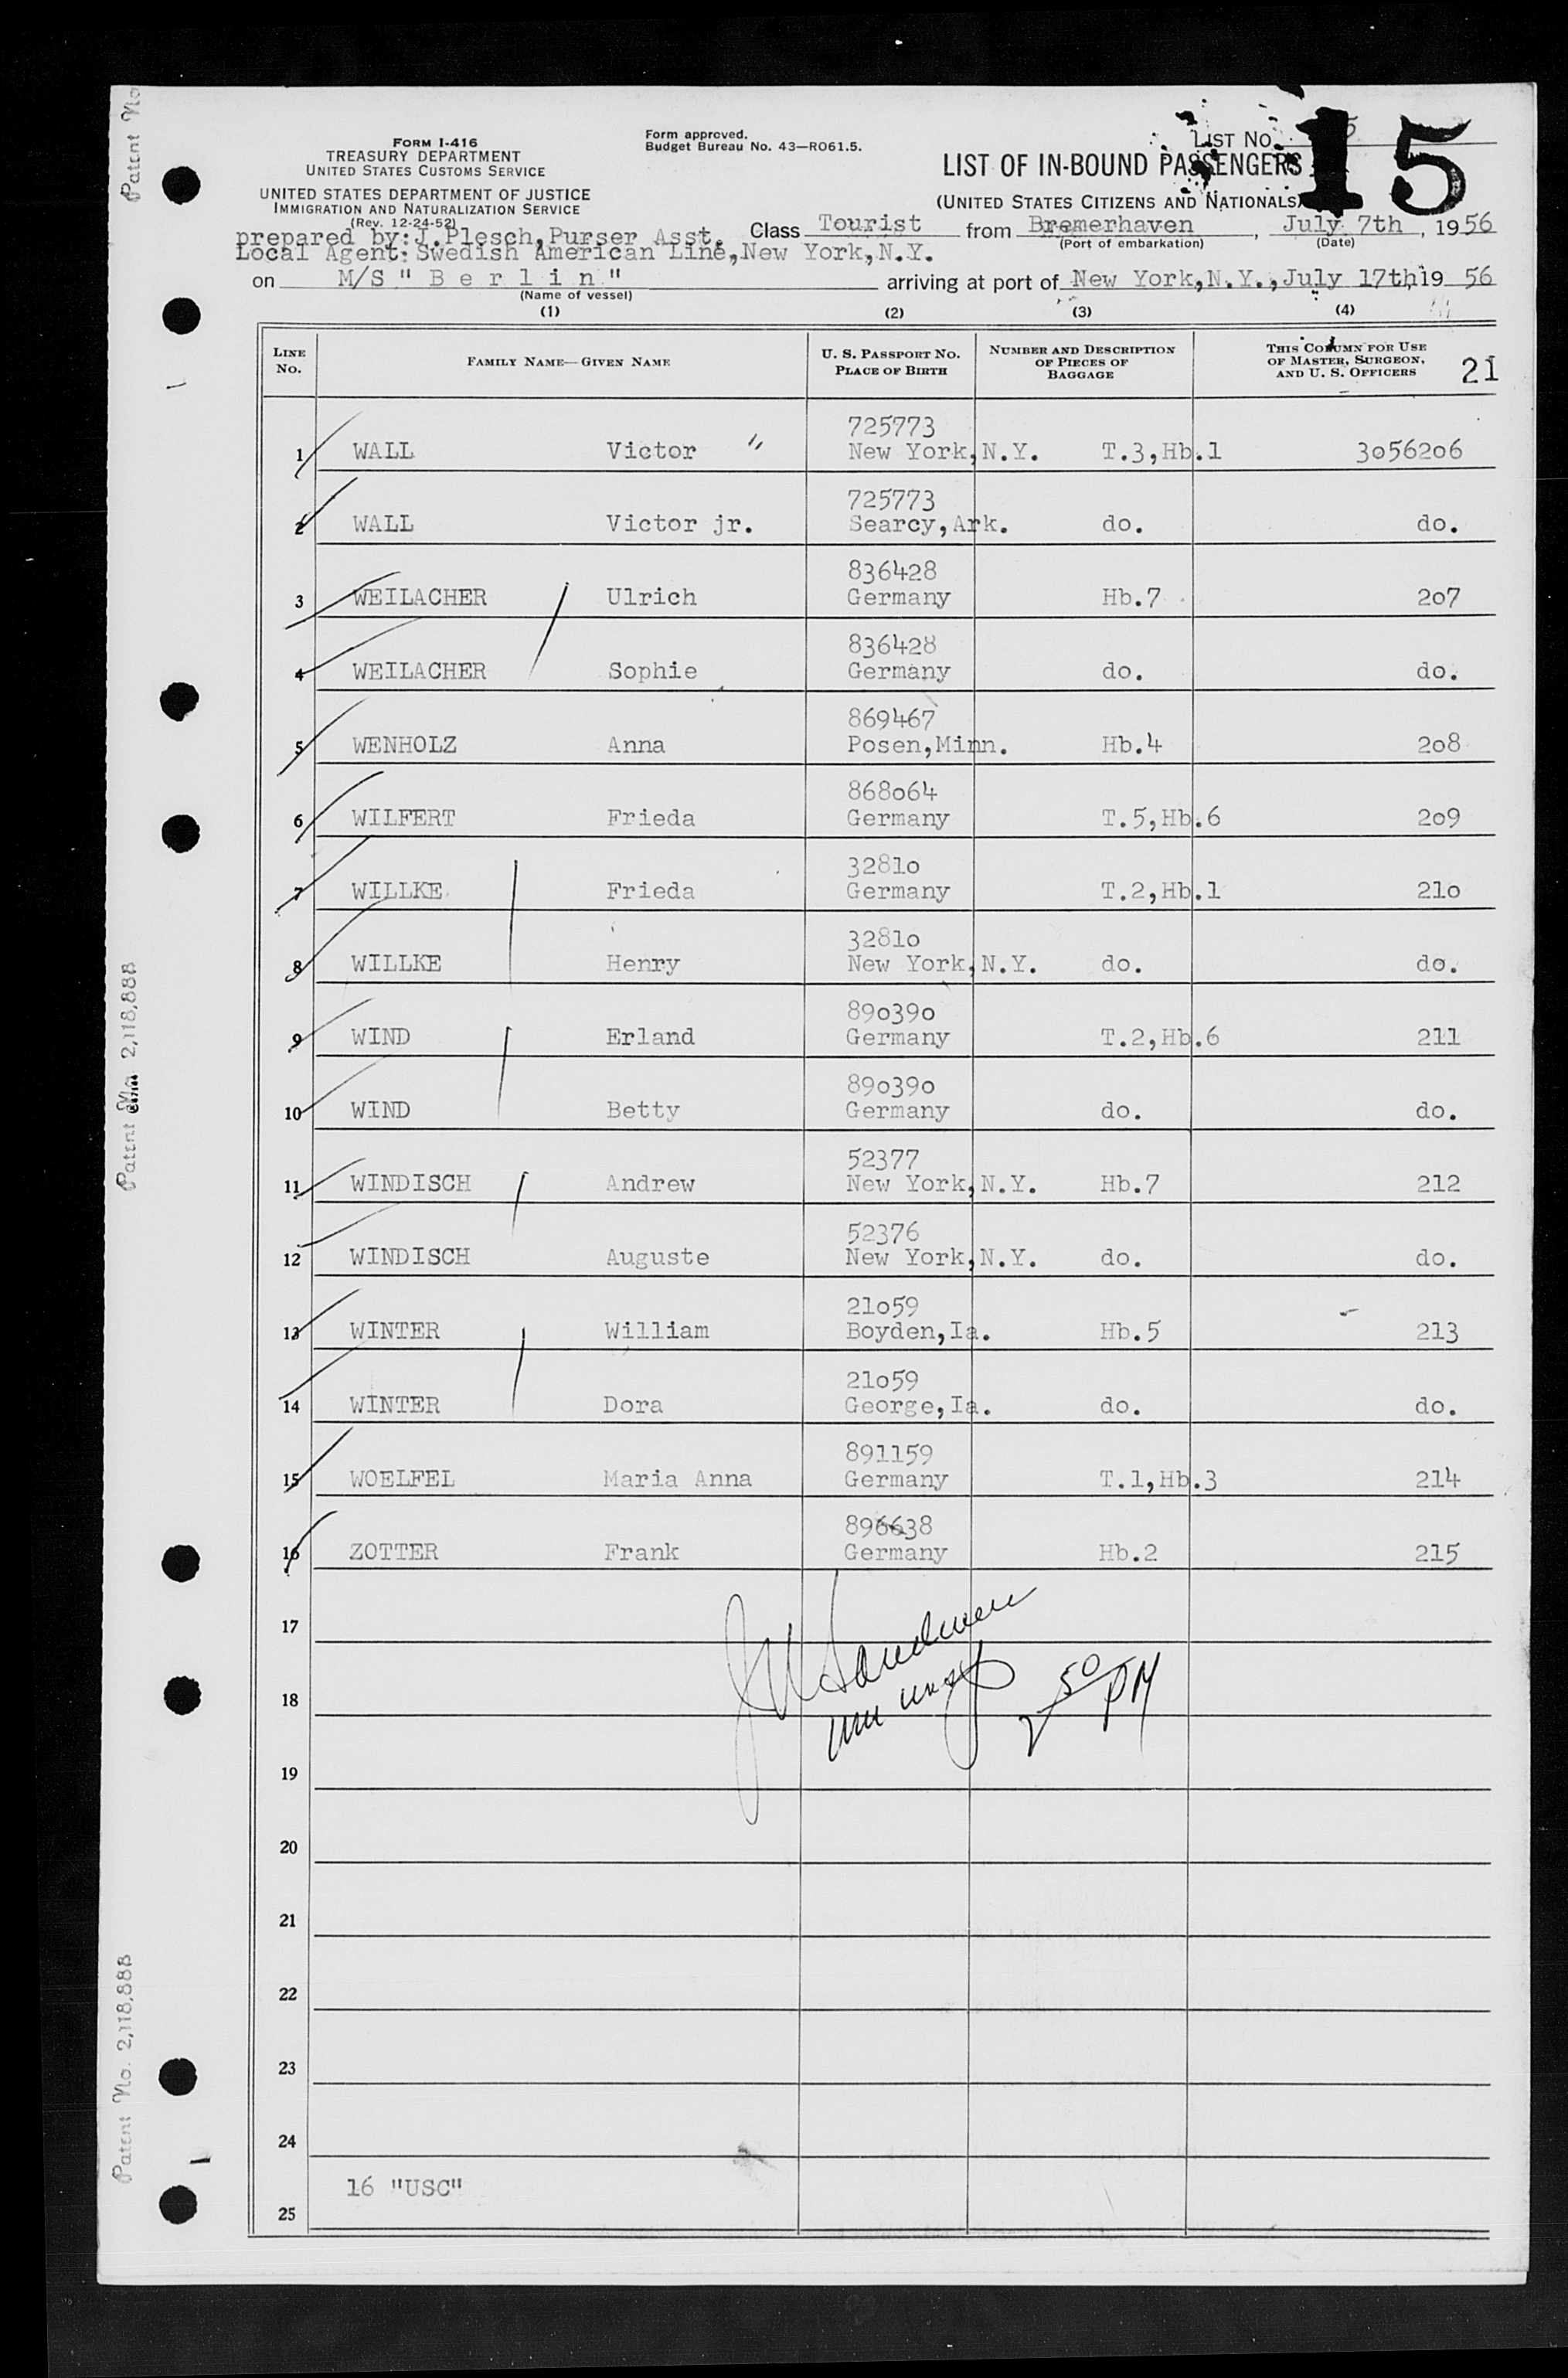 Form I-416
TREASURY DEPARTMENT
UNITED STATES CUSTOMS SERVICE
UNITED STATES DEPARTMENT OF JUSTICE
IMMIGRATION AND NATURALIZATION SERVICE
(Rev. 12-24-52)
Form approved.
Budget Bureau No. 43—RO61.5.
LIST No. 15
LIST OF IN-BOUND PASSENGERS
(UNITED STATES CITIZENS AND NATIONALS)
prepared by: J.Plesch, Purser Asst. Class Tourist from Bremerhaven, July 7th, 1956
(Port of embarkation) (Date)
Local Agent: Swedish American Line, New York, N.Y.
on M/S " B e r l i n " arriving at port of New York, N.Y., July 17th 19 56
(Name of vessel)
(1) (2) (3) (4)
LINE No. FAMILY NAME—GIVEN NAME U. S. PASSPORT No. PLACE OF BIRTH NUMBER AND DESCRIPTION OF PIECES OF BAGGAGE THIS COLUMN FOR USE OF MASTER, SURGEON, AND U. S. OFFICERS 21
725773
1 WALL Victor " New York, N.Y. T.3,Hb.1 3056206
725773
2 WALL Victor jr. Searcy,Ark. do. do.
836428
3 WEILACHER Ulrich Germany Hb.7 207
836428
4 WEILACHER Sophie Germany do. do.
869467
5 WENHOLZ Anna Posen,Minn. Hb.4 208
868064
6 WILFERT Frieda Germany T.5,Hb.6 209
32810
7 WILLKE Frieda Germany T.2,Hb.1 210
32810
8 WILLKE Henry New York, N.Y. do. do.
890390
9 WIND Erland Germany T.2,Hb.6 211
890390
10 WIND Betty Germany do. do.
52377
11 WINDISCH Andrew New York, N.Y. Hb.7 212
52376
12 WINDISCH Auguste New York, N.Y. do. do.
21059
13 WINTER William Boyden,Ia. Hb.5 213
21059
14 WINTER Dora George,Ia. do. do.
891159
15 WOELFEL Maria Anna Germany T.1,Hb.3 214
896638
16 ZOTTER Frank Germany Hb.2 215
17
18
2 50 PM
19
20
21
22
23
24
16 "USC"
25
Patent No
Patent No. 2,118,888
Patent No. 2,118,888